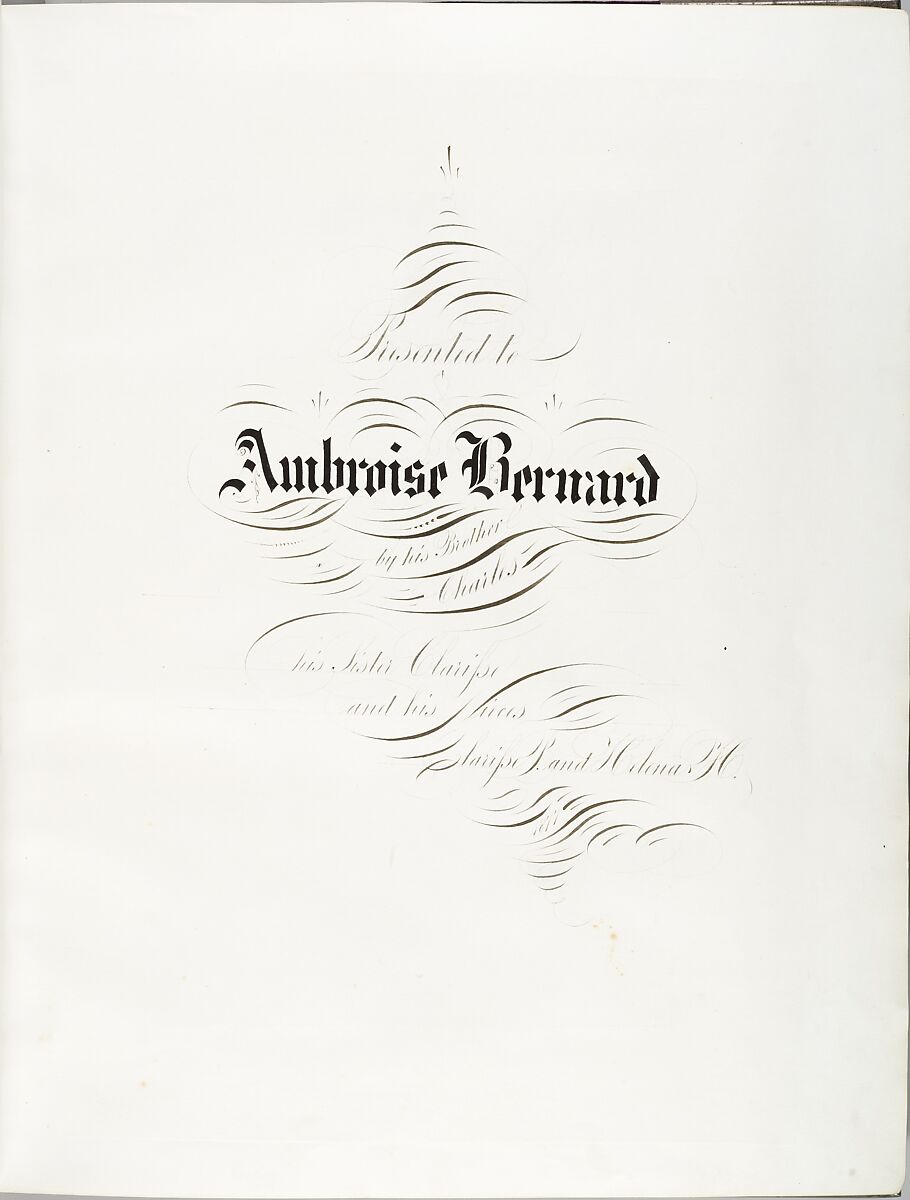 Presented to
Ambroise Bernard
by his Brother
Charles
his Sister Clariſse
and his Nieces
Clariſse P. and Helena P. H.